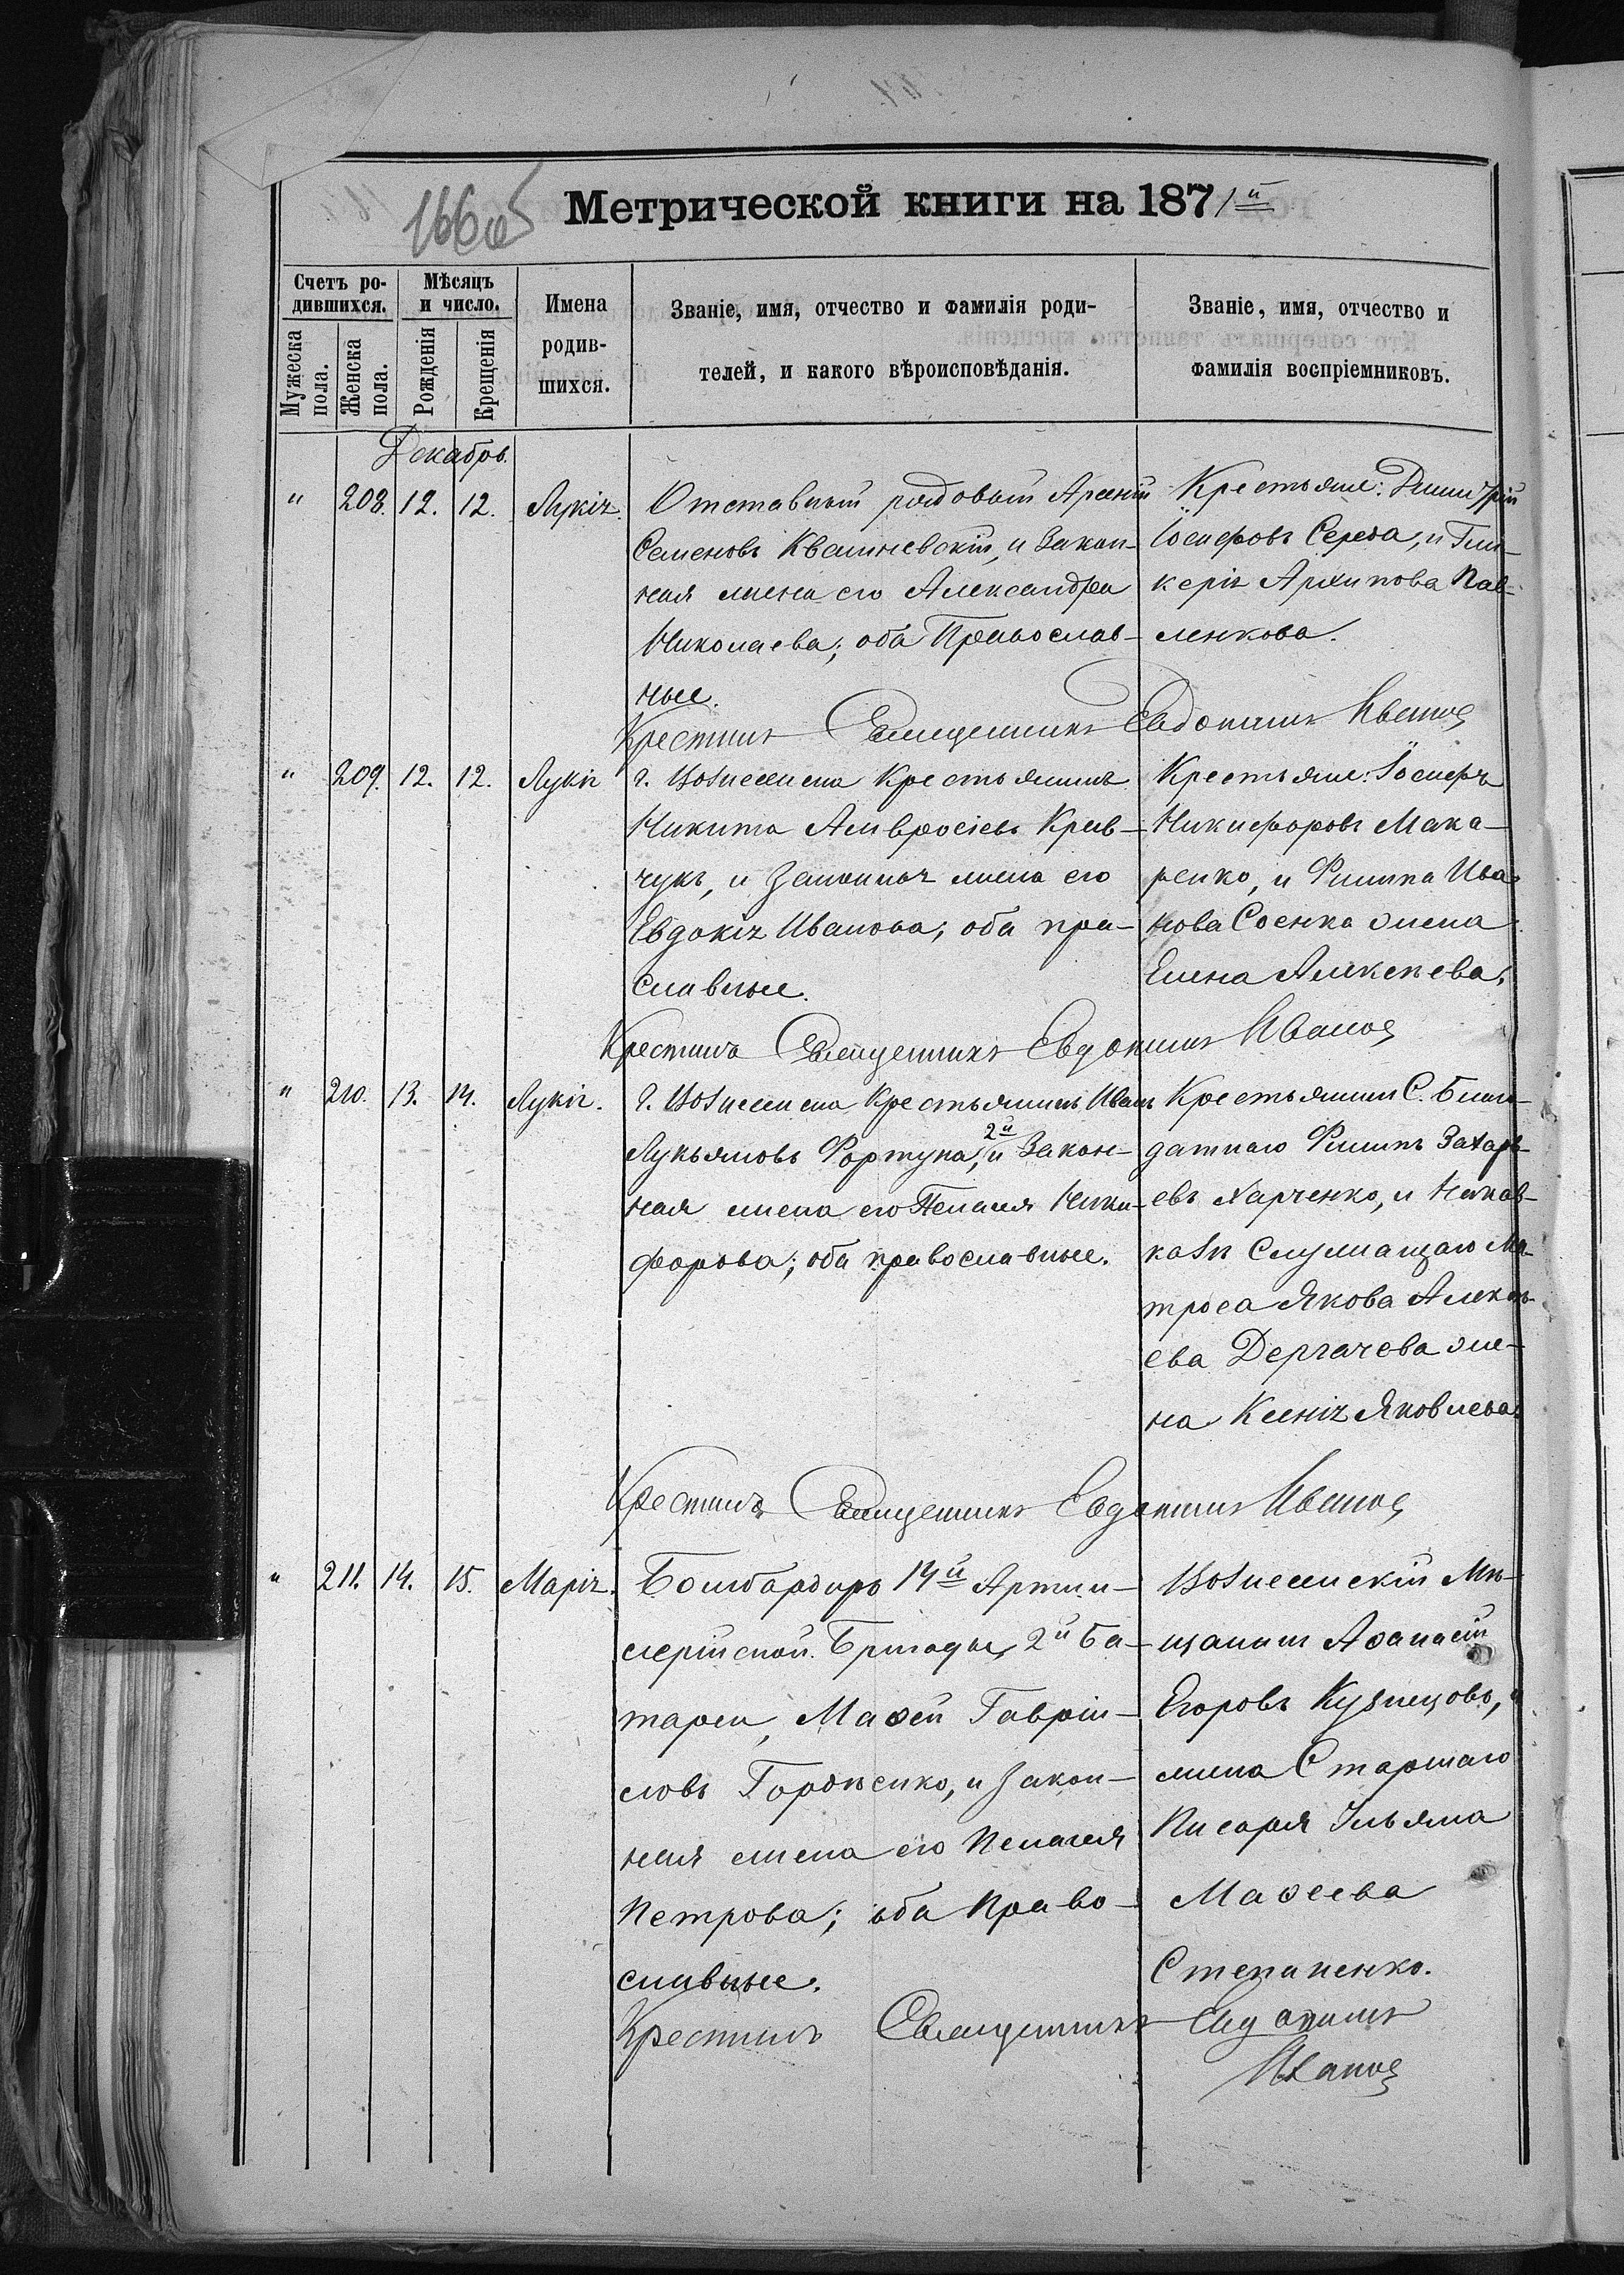 166 об
Метрической книги на 1871й
Счетъ ро-
дившихся.
Мужеска
пола.
Женска
пола.
Мѣсяцъ
и число.
Рожденія
Крещенія
Имена
родив-
шихся.
Званіе, имя, отчество и фамилія роди-
телей, и какого вѣроисповѣданія.
Званіе, имя, отчество и
фамилія воспріемниковъ.
Декабрь.
" 208. 12. 12. Лукія.
Отставный рядовый Арсеній
Семеновъ Квашневскій, и Закон-
ная жена его Александра
Николаева; оба Православ-
ные.
Крестьяне: Димитрій
Іосифовъ Середа, и Гли-
керія Архипова Пав-
ленкова.
Крестилъ Священникъ Евдокимъ Иванов
" 209. 12. 12. Лукія
г. Вознесенска Крестьянинъ
Никита Амвросіевъ Крив-
чукъ, и Законная жена его
Евдокія Иванова; оба пра-
славные.
Крестьяне: Іосифъ
Никифоровъ Мака-
ренко, и Филипа Ива
нова Соенка жена
Елена Алексѣева.
Крестилъ Священникъ Евдокимъ Иванов
" 210. 13. 14. Лукія.
г. Вознесенска Крестьянинъ Иванъ
Лукьяновъ Фортуна, 2й и Закон-
ная жена его Пелагея Ники-
форова; оба православные.
Крестьянин С. Благо-
датнаго Филипъ Захарь-
евъ Харченко, и На кав-
казѣ Служащаго Ма-
троса Якова Алексѣ-
ева Дергачева же-
на Ксенія Яковлева.
Крестилъ Священникъ Евдокимъ Иванов
" 211. 14. 15. Марія.
Бомбардиръ 14й Артил-
лерійской Бригады, 2й Ба-
тареи, Маѳей Гавріи-
ловъ Гордѣенко, и Закон-
ная жена его Пелагея
Петрова; оба Право-
славные.
Вознесенскій Мѣ-
щанин Аѳанасій
Егоровъ Кузнецовъ, и
жена Старшаго
Писаря Ульяна
Маѳеева
Степаненко.
Крестилъ Священникъ Евдокимъ
Иванов